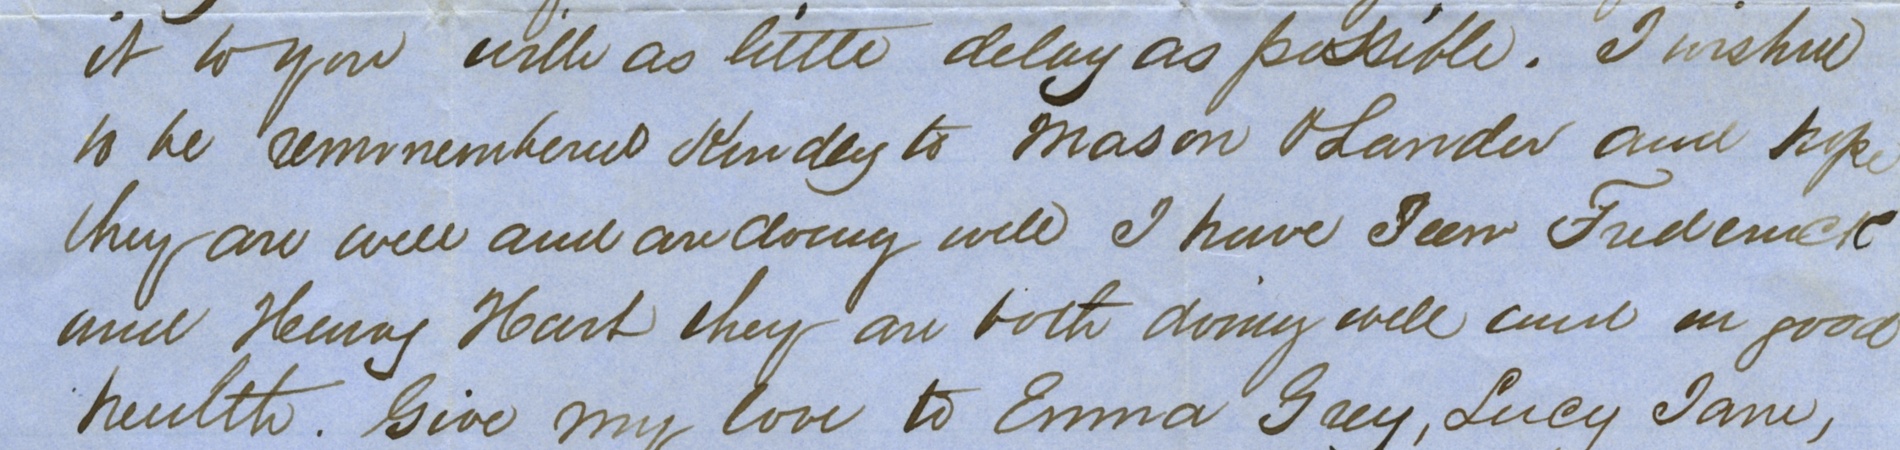 it to you with as little delay as possible. I wished
to be remmembered Kindey to Mason Lander and hope
they are well and are doing well I have Seen Frederick
and Henry Hart they are both doing well and in good
health. Give my love to Emma Grey, Lucy Jane,